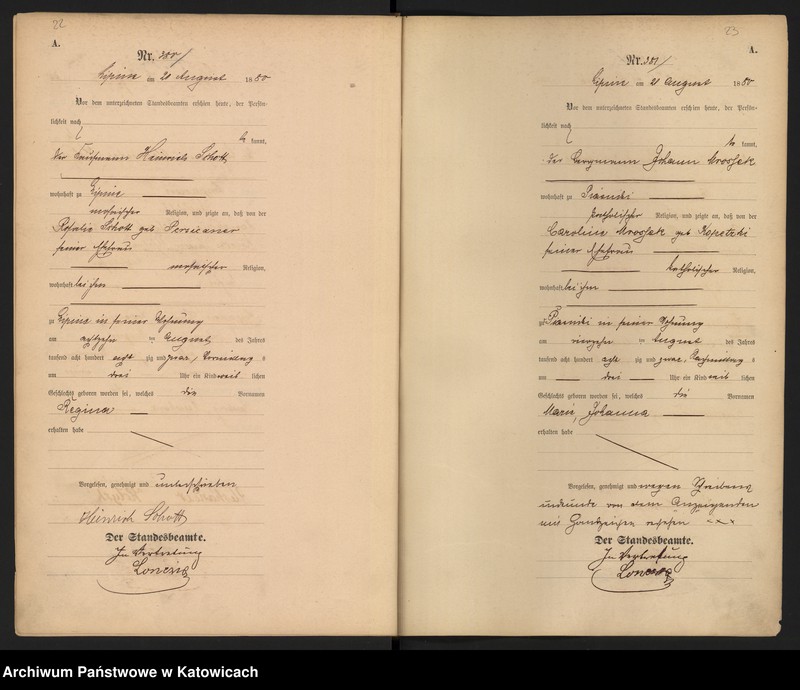 22
A.
Nr. 280/
Lipine am 21 August 1880
Vor dem unterzeichneten Standesbeamten erschien heute, der Persön-
lichkeit nach
be kannt,
der Kaufmann Heinrich Schott
wohnhaft zu Lipine
mosaischer Religion, und zeigte an, daß von der
Rosalie Schott geb
seiner Ehefrau
mosaischer Religion,
wohnhaft bei ihm
zu Lipine in seiner Wohnung
am achtzehn ten August des Jahres
tausend acht hundert acht zig und zwar Vormittag s
um drei Uhr ein Kind weib lichen
Geschlechts geboren worden sei, welches die Vornamen
Regina
erhalten habe
Vorgelesen, genehmigt und unterschrieben
Heinrich Schott
Der Standesbeamte.
In Vertretung
23
A.
Nr. 281/
Lipine am 21 August 1880
Vor dem unterzeichneten Standesbeamten erschien heute, der Persön-
lichkeit nach
be kannt,
der Bergmann Johann Mrossek
wohnhaft zu Piasniki
katholischer Religion, und zeigte an, daß von der
Caroline Mrossek geb Kopetzki
seiner Ehefrau
katholischer Religion,
wohnhaft bei ihm
zu Piasniki in seiner Wohnung
am vierzehn ten August des Jahres
tausend acht hundert acht zig und zwar Nachmittag s
um drei Uhr ein Kind weib lichen
Geschlechts geboren worden sei, welches die Vornamen
Marie, Johanna
erhalten habe
Vorgelesen, genehmigt und wegen Schreibens
unkunde von dem Anzeigenden
mit Handzeichen versehen xxx
Der Standesbeamte.
In Vertretung
Archiwum Państwowe w Katowicach